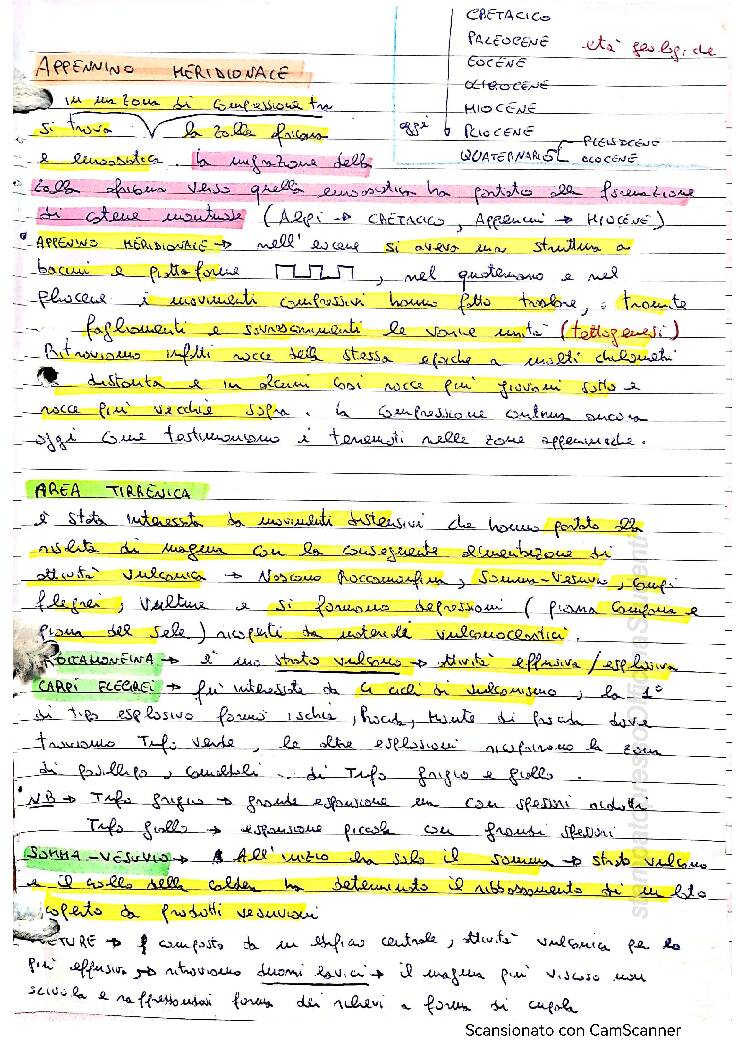 CRETACICO
PALEOCENE
EOCENE
OLIGOCENE
MIOCENE
PLIOCENE
QUATERNARIO
PLEISOCENE
OLOCENE
età geologiche
oggi
APPENNINO MERIDIONALE
in una zona di compressione tra
si trova la zolla africana
e euroasiatica. La migrazione della
zolla africana verso quella euroasiatica ha portato alla formazione
di catene montuose (Alpi → CRETACICO, Appennini → MIOCENE)
APPENNINO MERIDIONALE → nell'eocene si aveva una struttura a
bacini e piattaforme, nel quaternario e nel
pliocene i movimenti compressivi hanno fatto traslare, tramite
fagliamenti e sovrascorrimenti le varie unità (tettogenesi)
Ritroviamo infatti rocce della stessa epoche a molti chilometri
di distanza e in alcuni casi rocce più giovani sotto e
rocce più vecchie sopra. La compressione continua ancora
oggi come testimoniano i terremoti nelle zone appenniniche.
AREA TIRRENICA
è stata interessata da movimenti distensivi che hanno portato alla
risalita di magma con la conseguente alimentazione di
attività vulcanica → Nascono Roccamonfina, Somma-Vesuvio, Campi
flegrei, Vulture e si formano depressioni (piana Campana e
piana del Sele) ricoperti da materiali vulcanoclastici.
ROCCAMONFINA → è uno strato vulcano → attività effusiva/esplosiva
CAMPI FLEGREI → fu interessata da 4 cicli di vulcanismo, la 1°
di tipo esplosivo formò Ischia, Procida, Monte di Procida dove
troviamo Tufo verde, le altre esplosioni ricoprirono la zona
di posillipo, camaldoli... di Tufo grigio e giallo.
NB → Tufo grigio → grande espansione con spessori ridotti
Tufo giallo → espansione piccola con grandi spessori
SOMMA-VESUVIO → All'inizio ha solo il somma → strato vulcano
e il crollo della caldera ha determinato il ribassamento di un lato
coperto da prodotti vesuviani
VULTURE → composto da un edificio centrale, attività vulcanica per lo
più effusiva → ritroviamo duomi lavici → il magma più viscoso non
scivola e raffreddandosi forma dei rilievi a forma di cupola
Scansionato con CamScanner